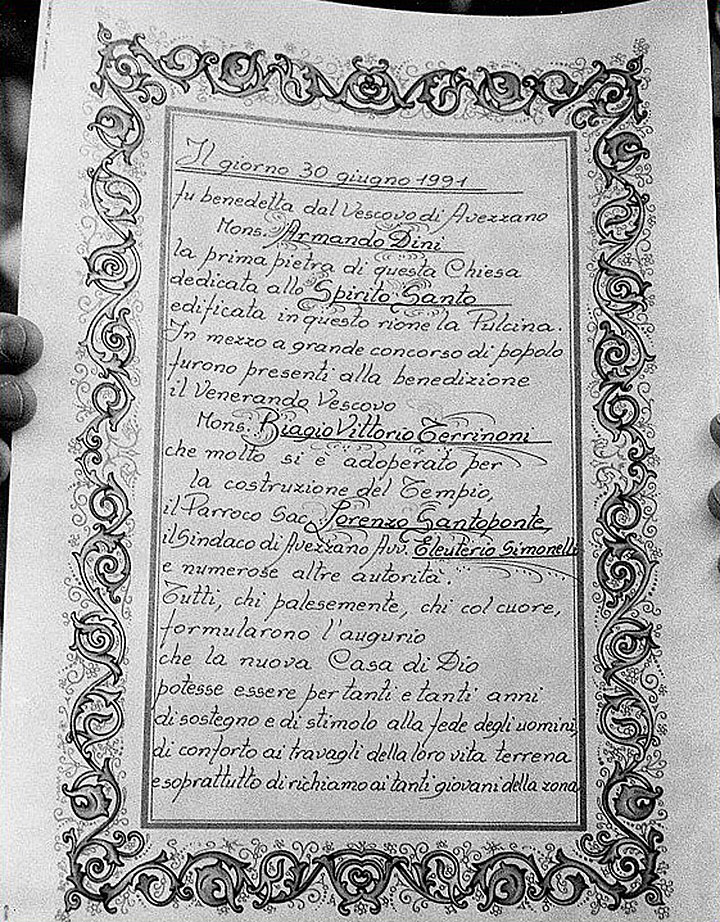 Il giorno 30 giugno 1991
fu benedetta dal Vescovo di Avezzano
Mons. Armando Dini
la prima pietra di questa Chiesa
dedicata allo Spirito Santo
edificata in questo rione la Pulcina.
In mezzo a grande concorso di popolo
furono presenti alla benedizione
il Venerando Vescovo
Mons. Biagio Vittorio Terrinoni
che molto si è adoperato per
la costruzione del Tempio,
il Parroco Sac. Lorenzo Santoponte
il Sindaco di Avezzano Avv. Eleuterio Simonelli
e numerose altre autorità.
Tutti, chi palesemente, chi col cuore,
formularono l'augurio
che la nuova Casa di Dio
potesse essere per tanti e tanti anni
di sostegno e di stimolo alla fede degli uomini,
di conforto ai travagli della loro vita terrena
e soprattutto di richiamo ai tanti giovani della zona